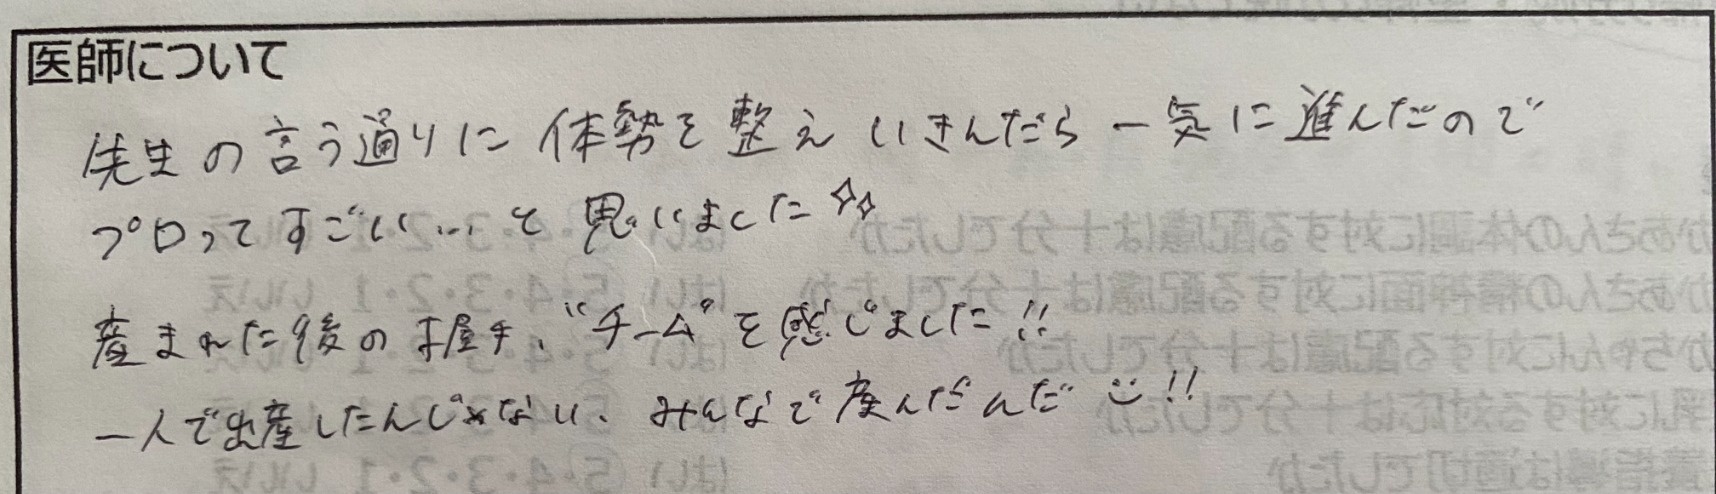 医師について
先生の言う通りに体勢を整えいきんだら一気に進んだので
プロってすごい…と思いました✨
産まれた後の握手、“チーム”を感じました!!
一人で出産したんじゃない、みんなで産んだんだ☺!!